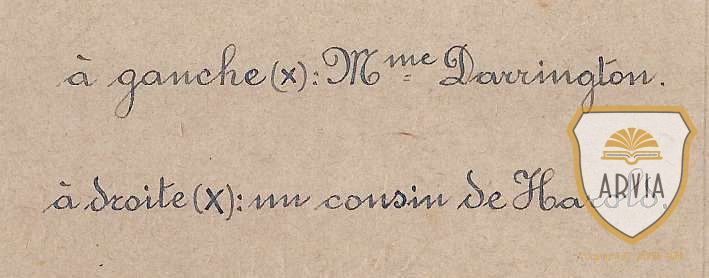 à gauche (x): Mme Darrington.
à droite (x): un cousin de Harold.
ARVIA